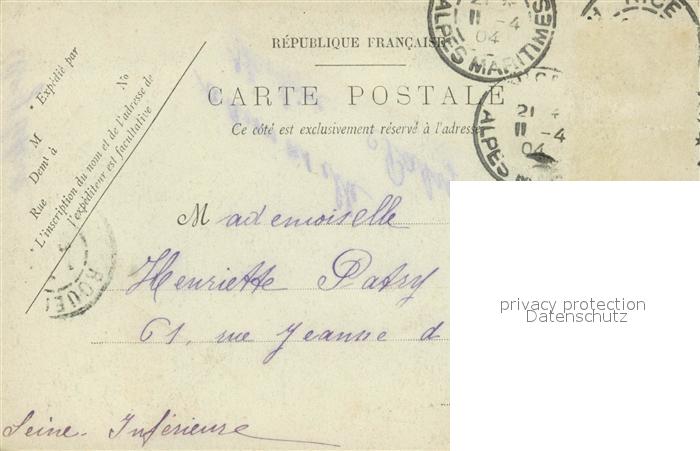 RÉPUBLIQUE FRANÇAISE
CARTE POSTALE
Ce côté est exclusivement réservé à l'adresse
Expédié par
No
M
Demt à
Rue
L'inscription du nom et de l'adresse de
l'expéditeur est facultative
ALPES MARITIMES
11 -4
04
ALPES
11 -4
04
ROUE
Mademoiselle
Henriette Patry
61, rue Jeanne d
Seine-Inférieure
privacy protection
Datenschutz